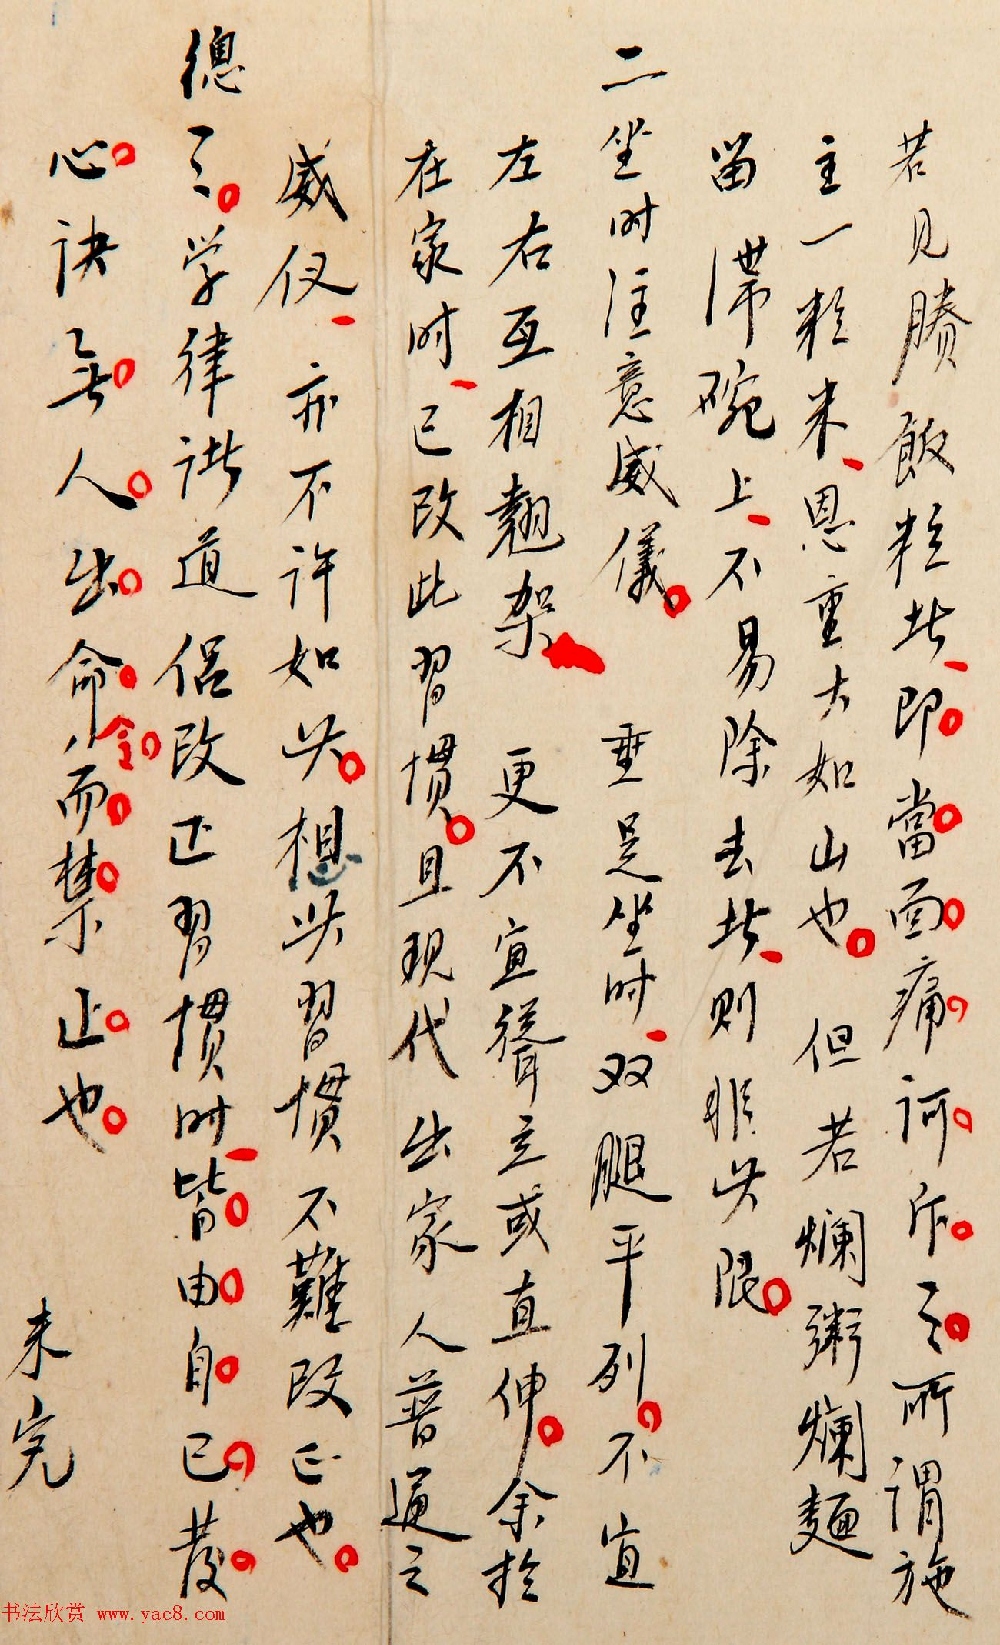 若见賸飯粒者即當面痛诃斥之所谓施
主一粒米恩重大如山也但若爛粥爛麵
留滞碗上不易除去者则非此限
二坐时注意威儀垂足坐时双腿平列不宜
左右互相翘架更不宜聳立或直伸余於
在家时已改此習惯且现代出家人普通之
威仪亦不许如此想此習惯不難改正也
總之学律诸道侣改正習惯时皆由自己發
心决無人出命令而禁止也
未完
书法欣赏 www.yac8.com